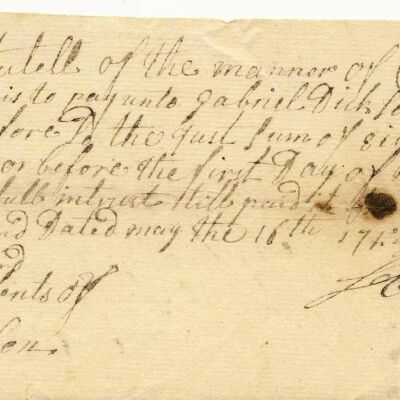 of the mannor of
is to pay unto Gabriel Dick
fore D the Just Sum of
or before the first Day of
full intrust till paid it
nd Dated may the 16th 174
d
ents of
on